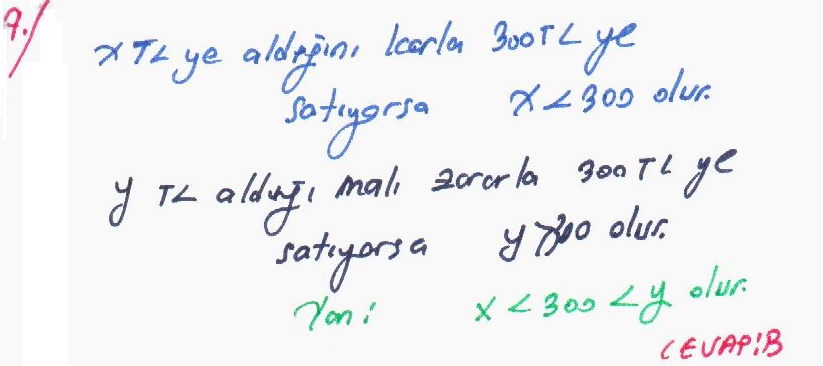 9./
x TL ye aldığını karla 300TL ye
satıyorsa x<300 olur.
y TL aldığı malı zararla 300 TL ye
satıyorsa y>300 olur.
Yani x<300<y olur.
CEVAP:B